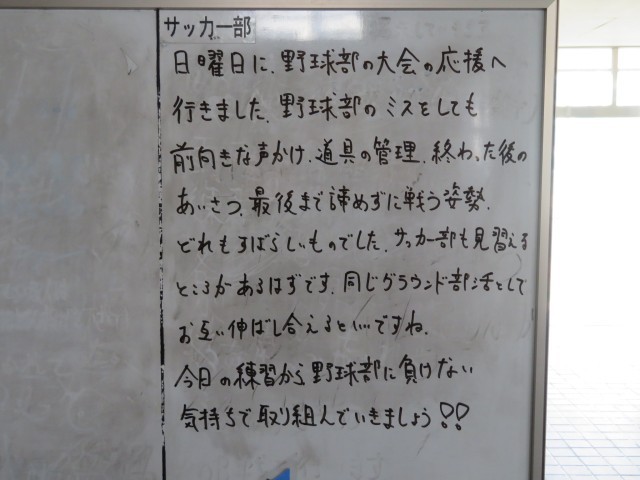 サッカー部
日曜日に、野球部の大会の応援へ
行きました。野球部の ミスをしても
前向きな声かけ、道具の管理、終わった後の
あいさつ、最後まで諦めずに戦う姿勢、
どれもすばらしいものでした。サッカー部も見習える
ところがあるはずです。同じグラウンド部活として
お互い伸ばし合えるといいですね。
今日の練習から野球部に負けない
気持ちで取り組んでいきましょう!!